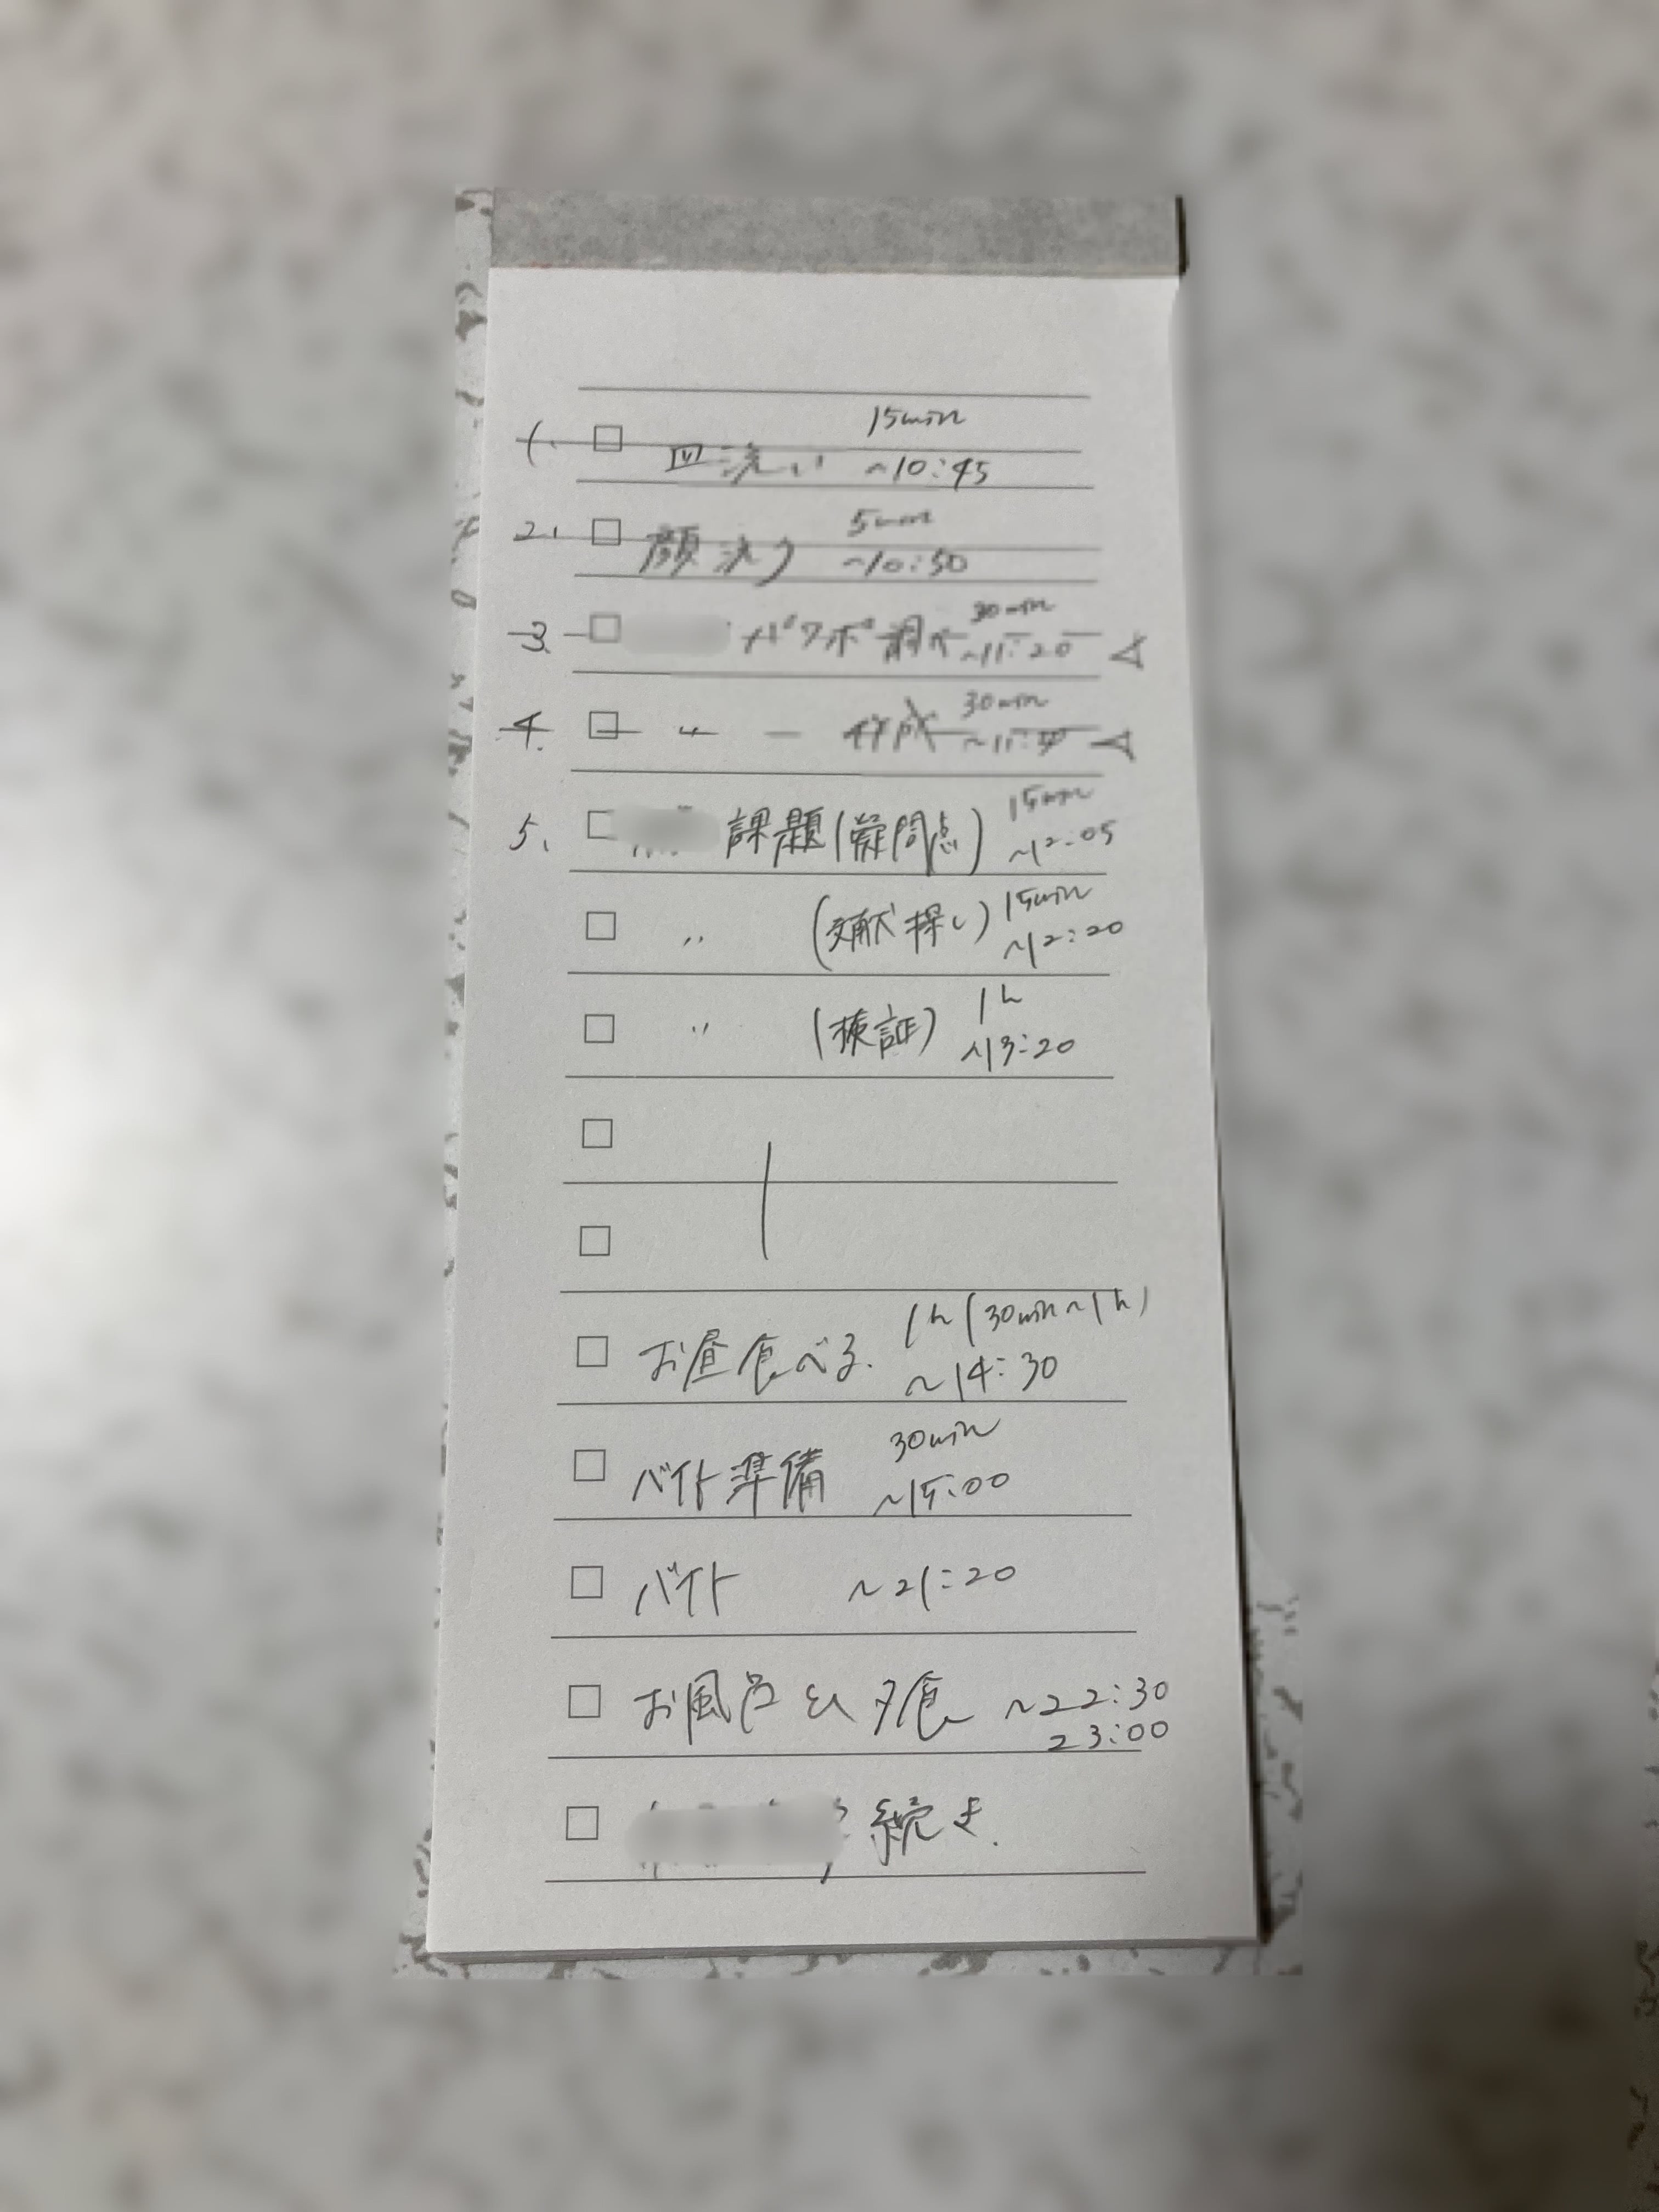 1. 15min
皿洗い ~10:45
2. 5min
顔洗う ~10:50
3. パワポ調べ 30min
~11:20 △
4. 〃 作成 30min
~11:5 △
5. 課題(疑問点) 15min
~12:05
〃 (文献探し) 15min
~12:20
〃 (検証) 1h
~13:20
お昼食べる. 1h(30min~1h)
~14:30
バイト準備 30min
~15:00
バイト ~21:20
お風呂&夕食 ~22:30
23:00
続き.